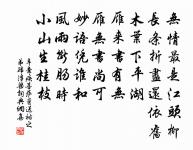 無情最是江頭柳
長條折盡還依舊
木葉下平湖
雁來書有無
雁無書尚可
妙語憑誰和
風雨斷腸時
小山生桂枝
辛棄疾菩薩蠻送祐之
弟歸浮梁